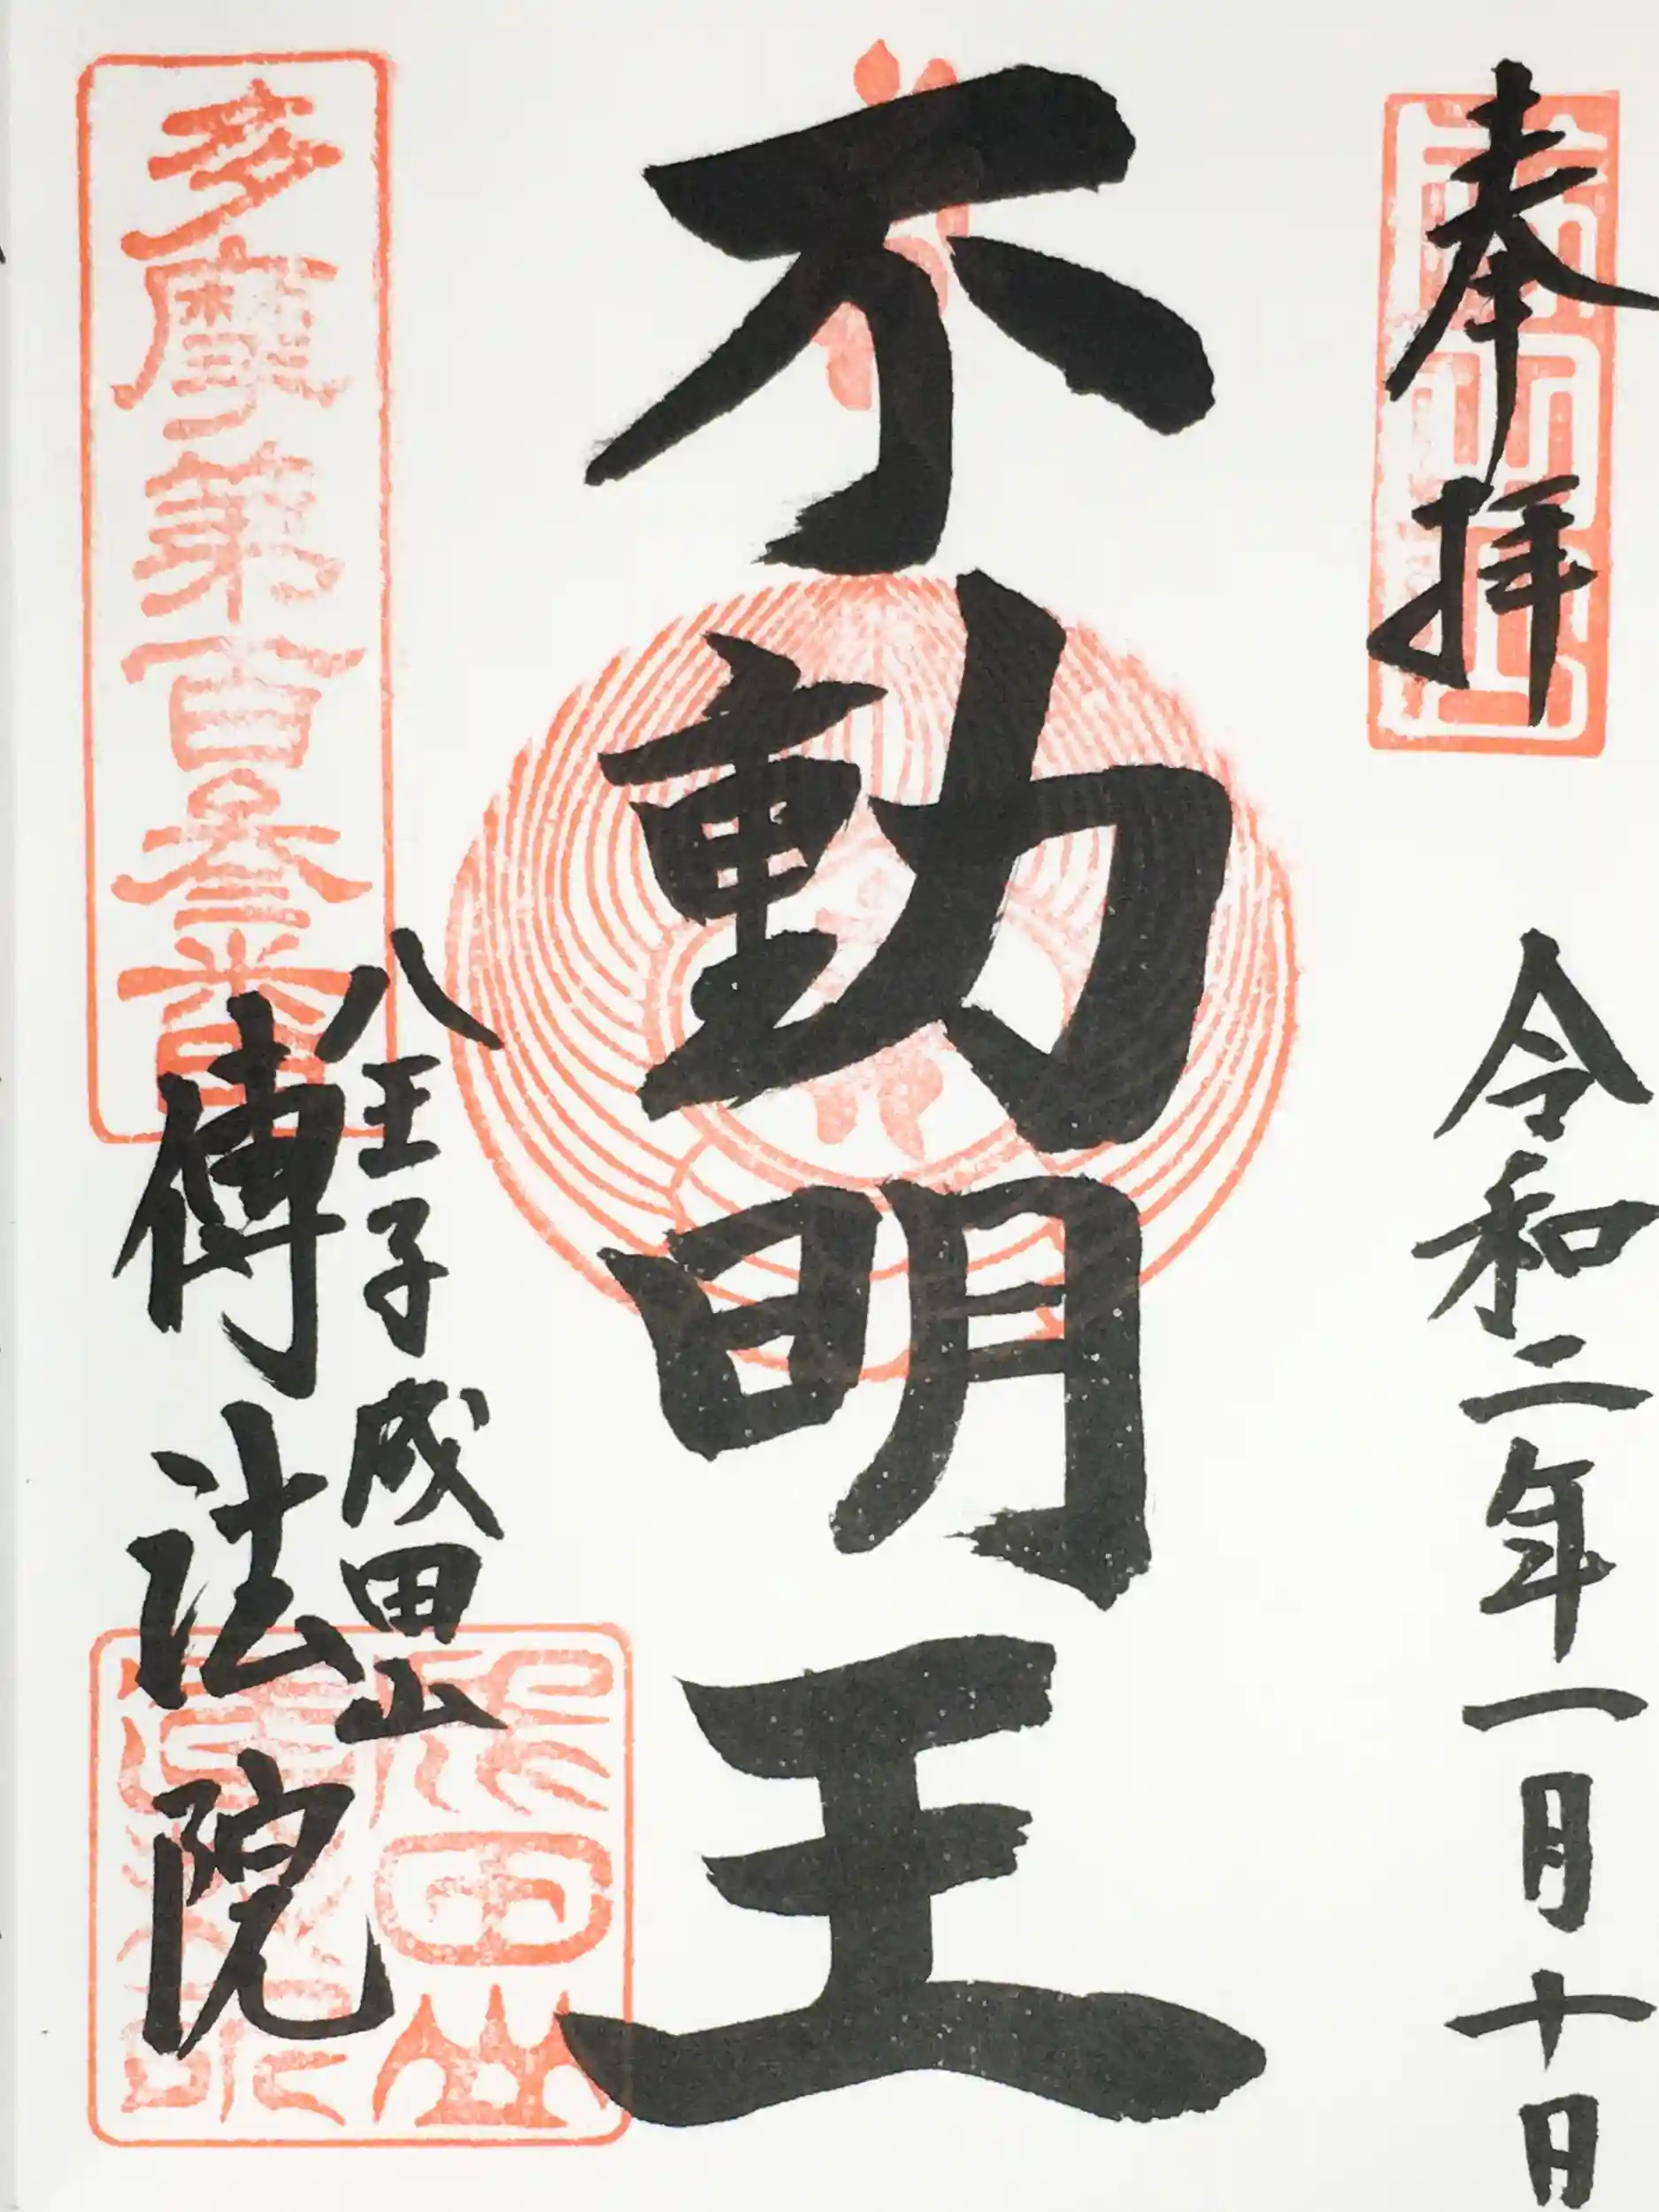 奉拝
令和二年一月十日
不動明王
八王子成田山
傳法院
多摩第百